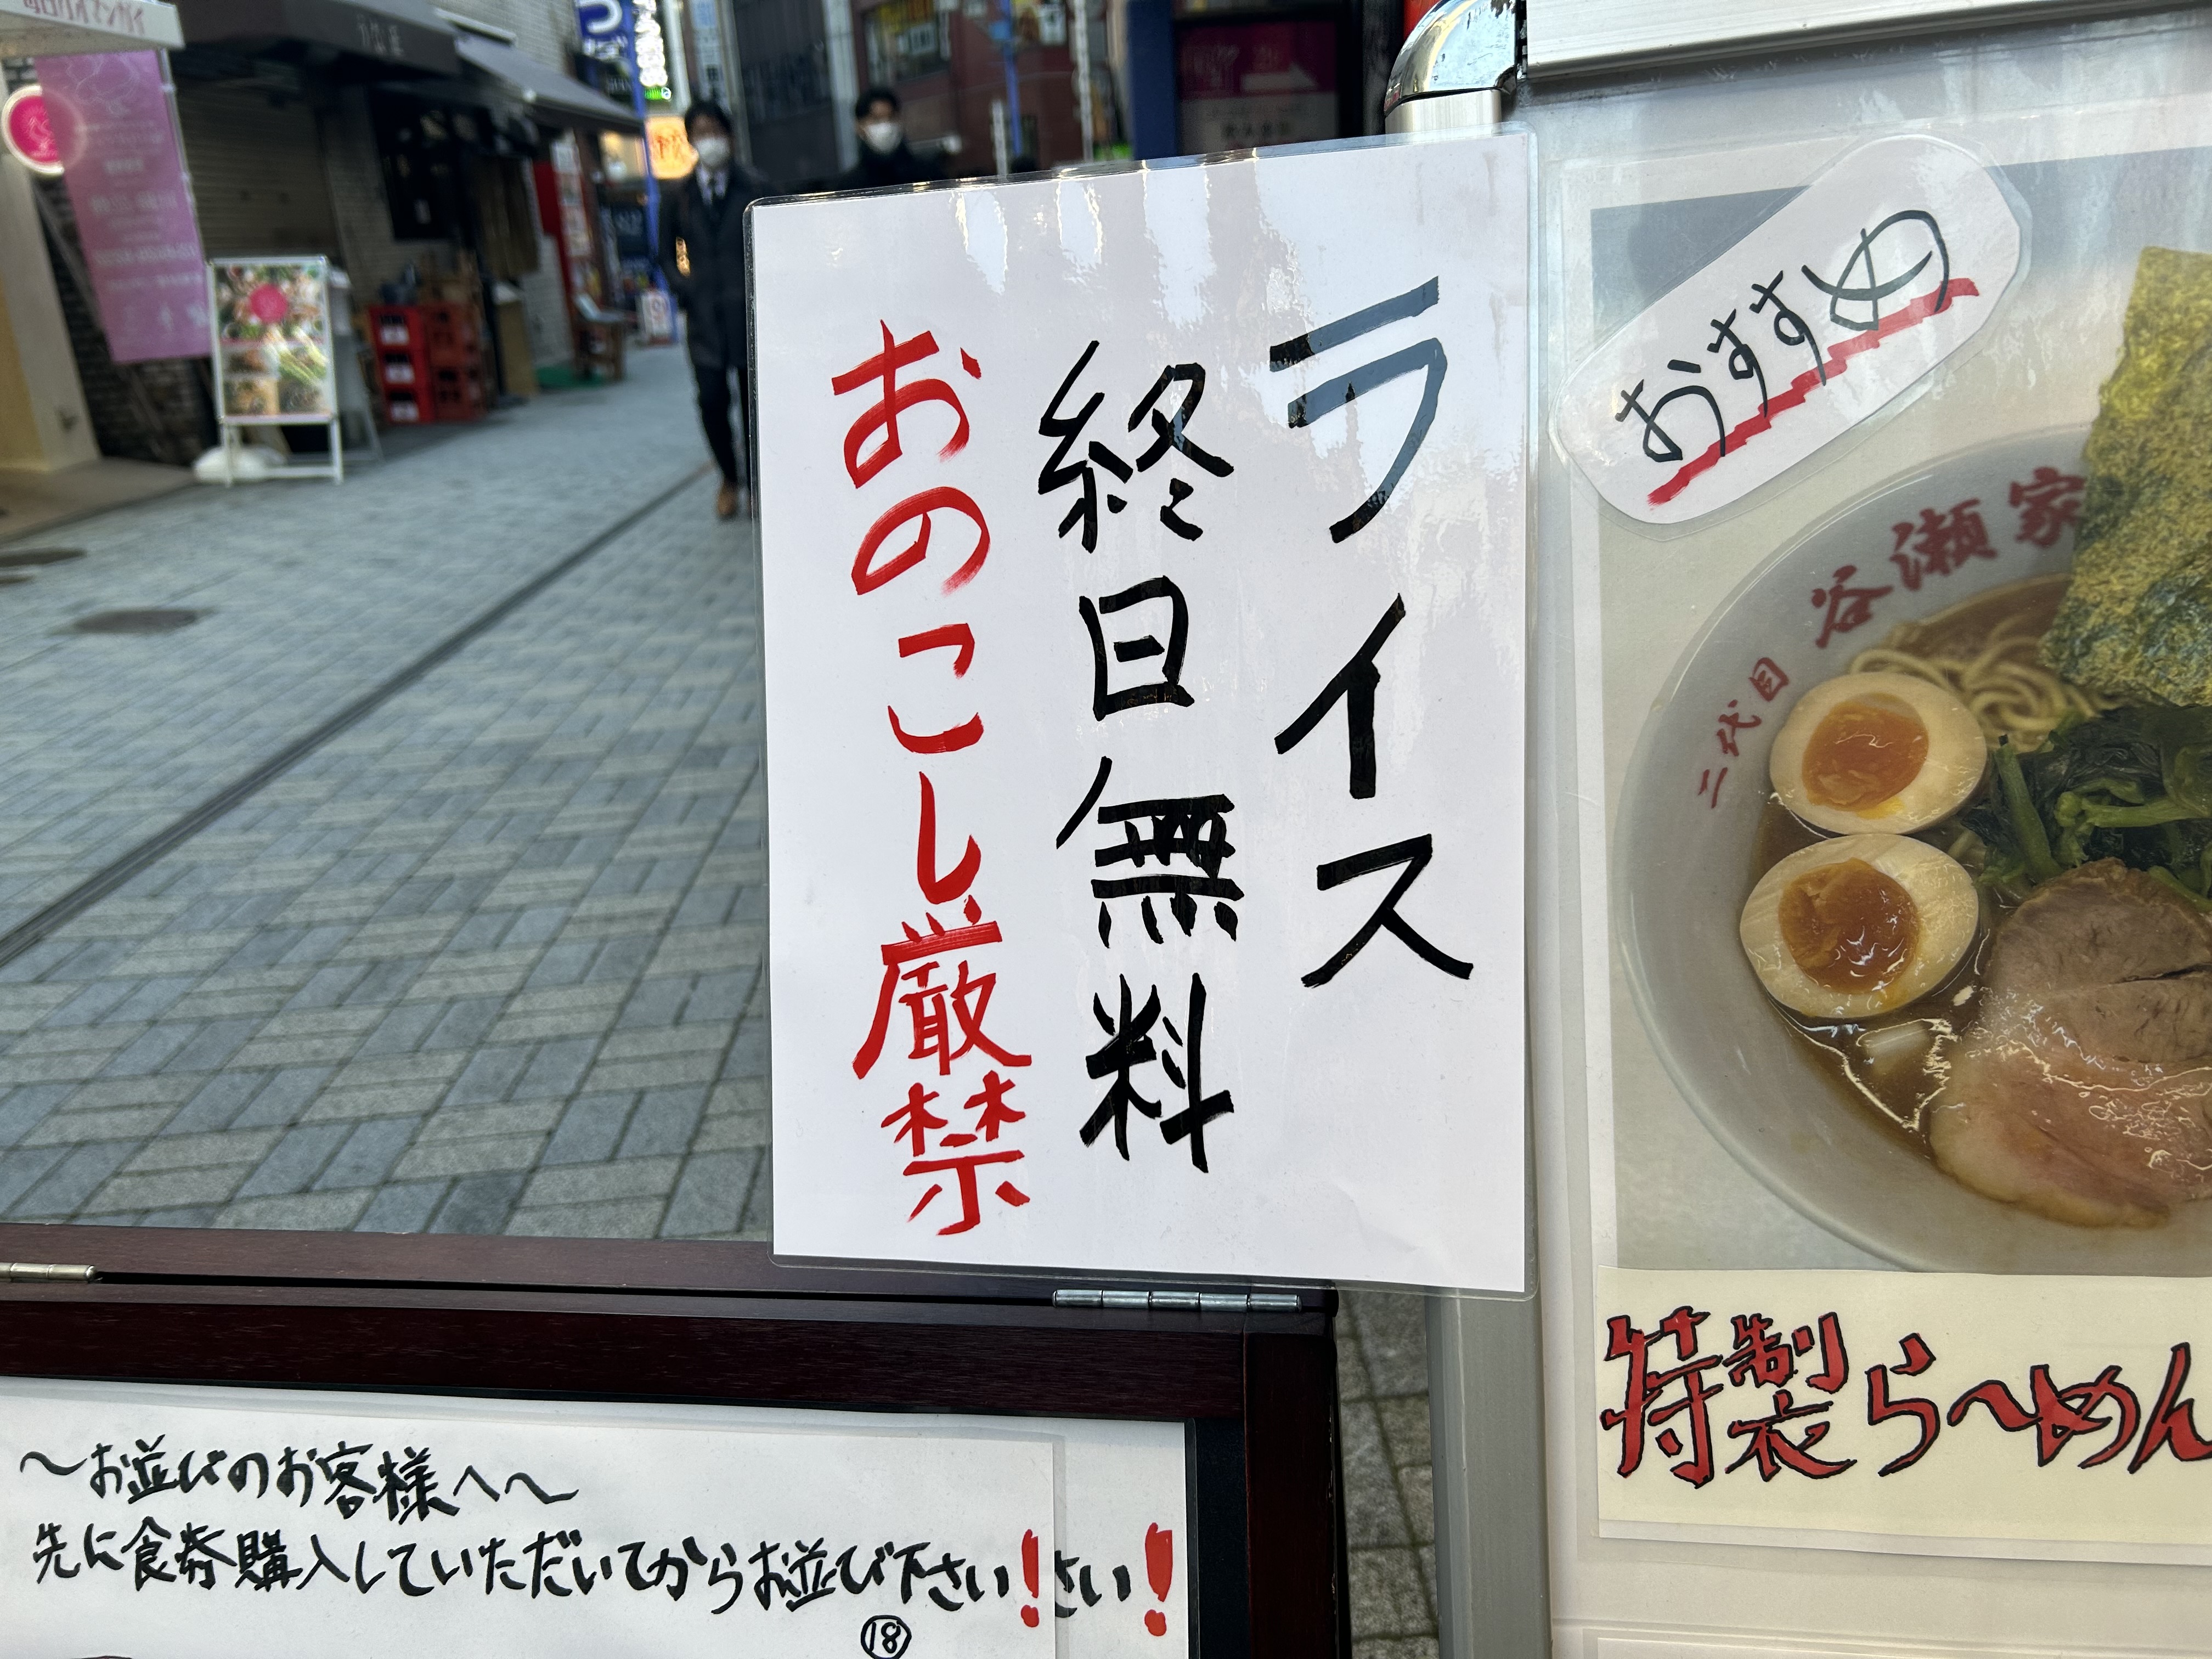 ライス
終日無料
おのこし厳禁
おすすめ
谷瀬家
二代目
特製らーめん
～お並びのお客様へ～
先に食券購入していただいてからお並び下さい！さい！
⑱